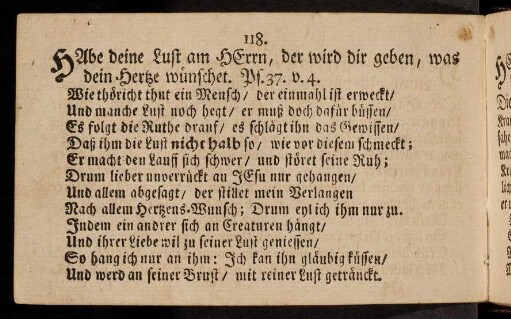 118.
HAbe deine Lust am HErrn, der wird dir geben, was
dein Hertze wünschet. Ps. 37. v. 4.
Wie thöricht thut ein Mensch/ der einmahl ist erweckt/
Und manche Lust noch hegt/ er muß doch dafür büssen/
Es folgt die Ruthe drauf/ es schlägt ihn das Gewissen/
Daß ihm die Lust nicht halb so/ wie vor diesem schmeckt;
Er macht den Lauff sich schwer/ und störet seine Ruh;
Drum lieber unverrückt an JEsu nur gehangen/
Und allem abgesagt/ der stillet mein Verlangen
Nach allem Hertzens-Wunsch; Drum eyl ich ihm nur zu.
Indem ein andrer sich an Creaturen hängt/
Und ihrer Liebe wil zu seiner Lust geniessen/
So hang ich nur an ihm: Ich kan ihn gläubig küssen/
Und werd an seiner Brust/ mit reiner Lust getränckt.